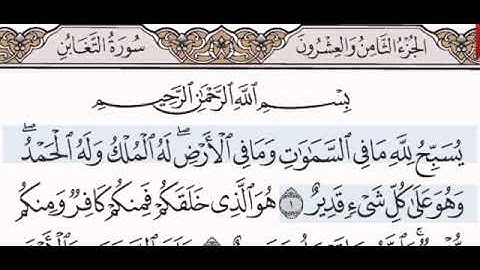 الجُزْءُ الثَّامِنُ وَالْعِشْرُونَ سُورَةُ التَّغَابُنِ
بِسْمِ اللَّهِ الرَّحْمَٰنِ الرَّحِيمِ
يُسَبِّحُ لِلَّهِ مَا فِي السَّمَٰوَٰتِ وَمَا فِي الْأَرْضِ ۖ لَهُ الْمُلْكُ وَلَهُ الْحَمْدُ ۖ
وَهُوَ عَلَىٰ كُلِّ شَيْءٍ قَدِيرٌ ۝١ هُوَ الَّذِي خَلَقَكُمْ فَمِنكُمْ كَافِرٌ وَمِنكُم